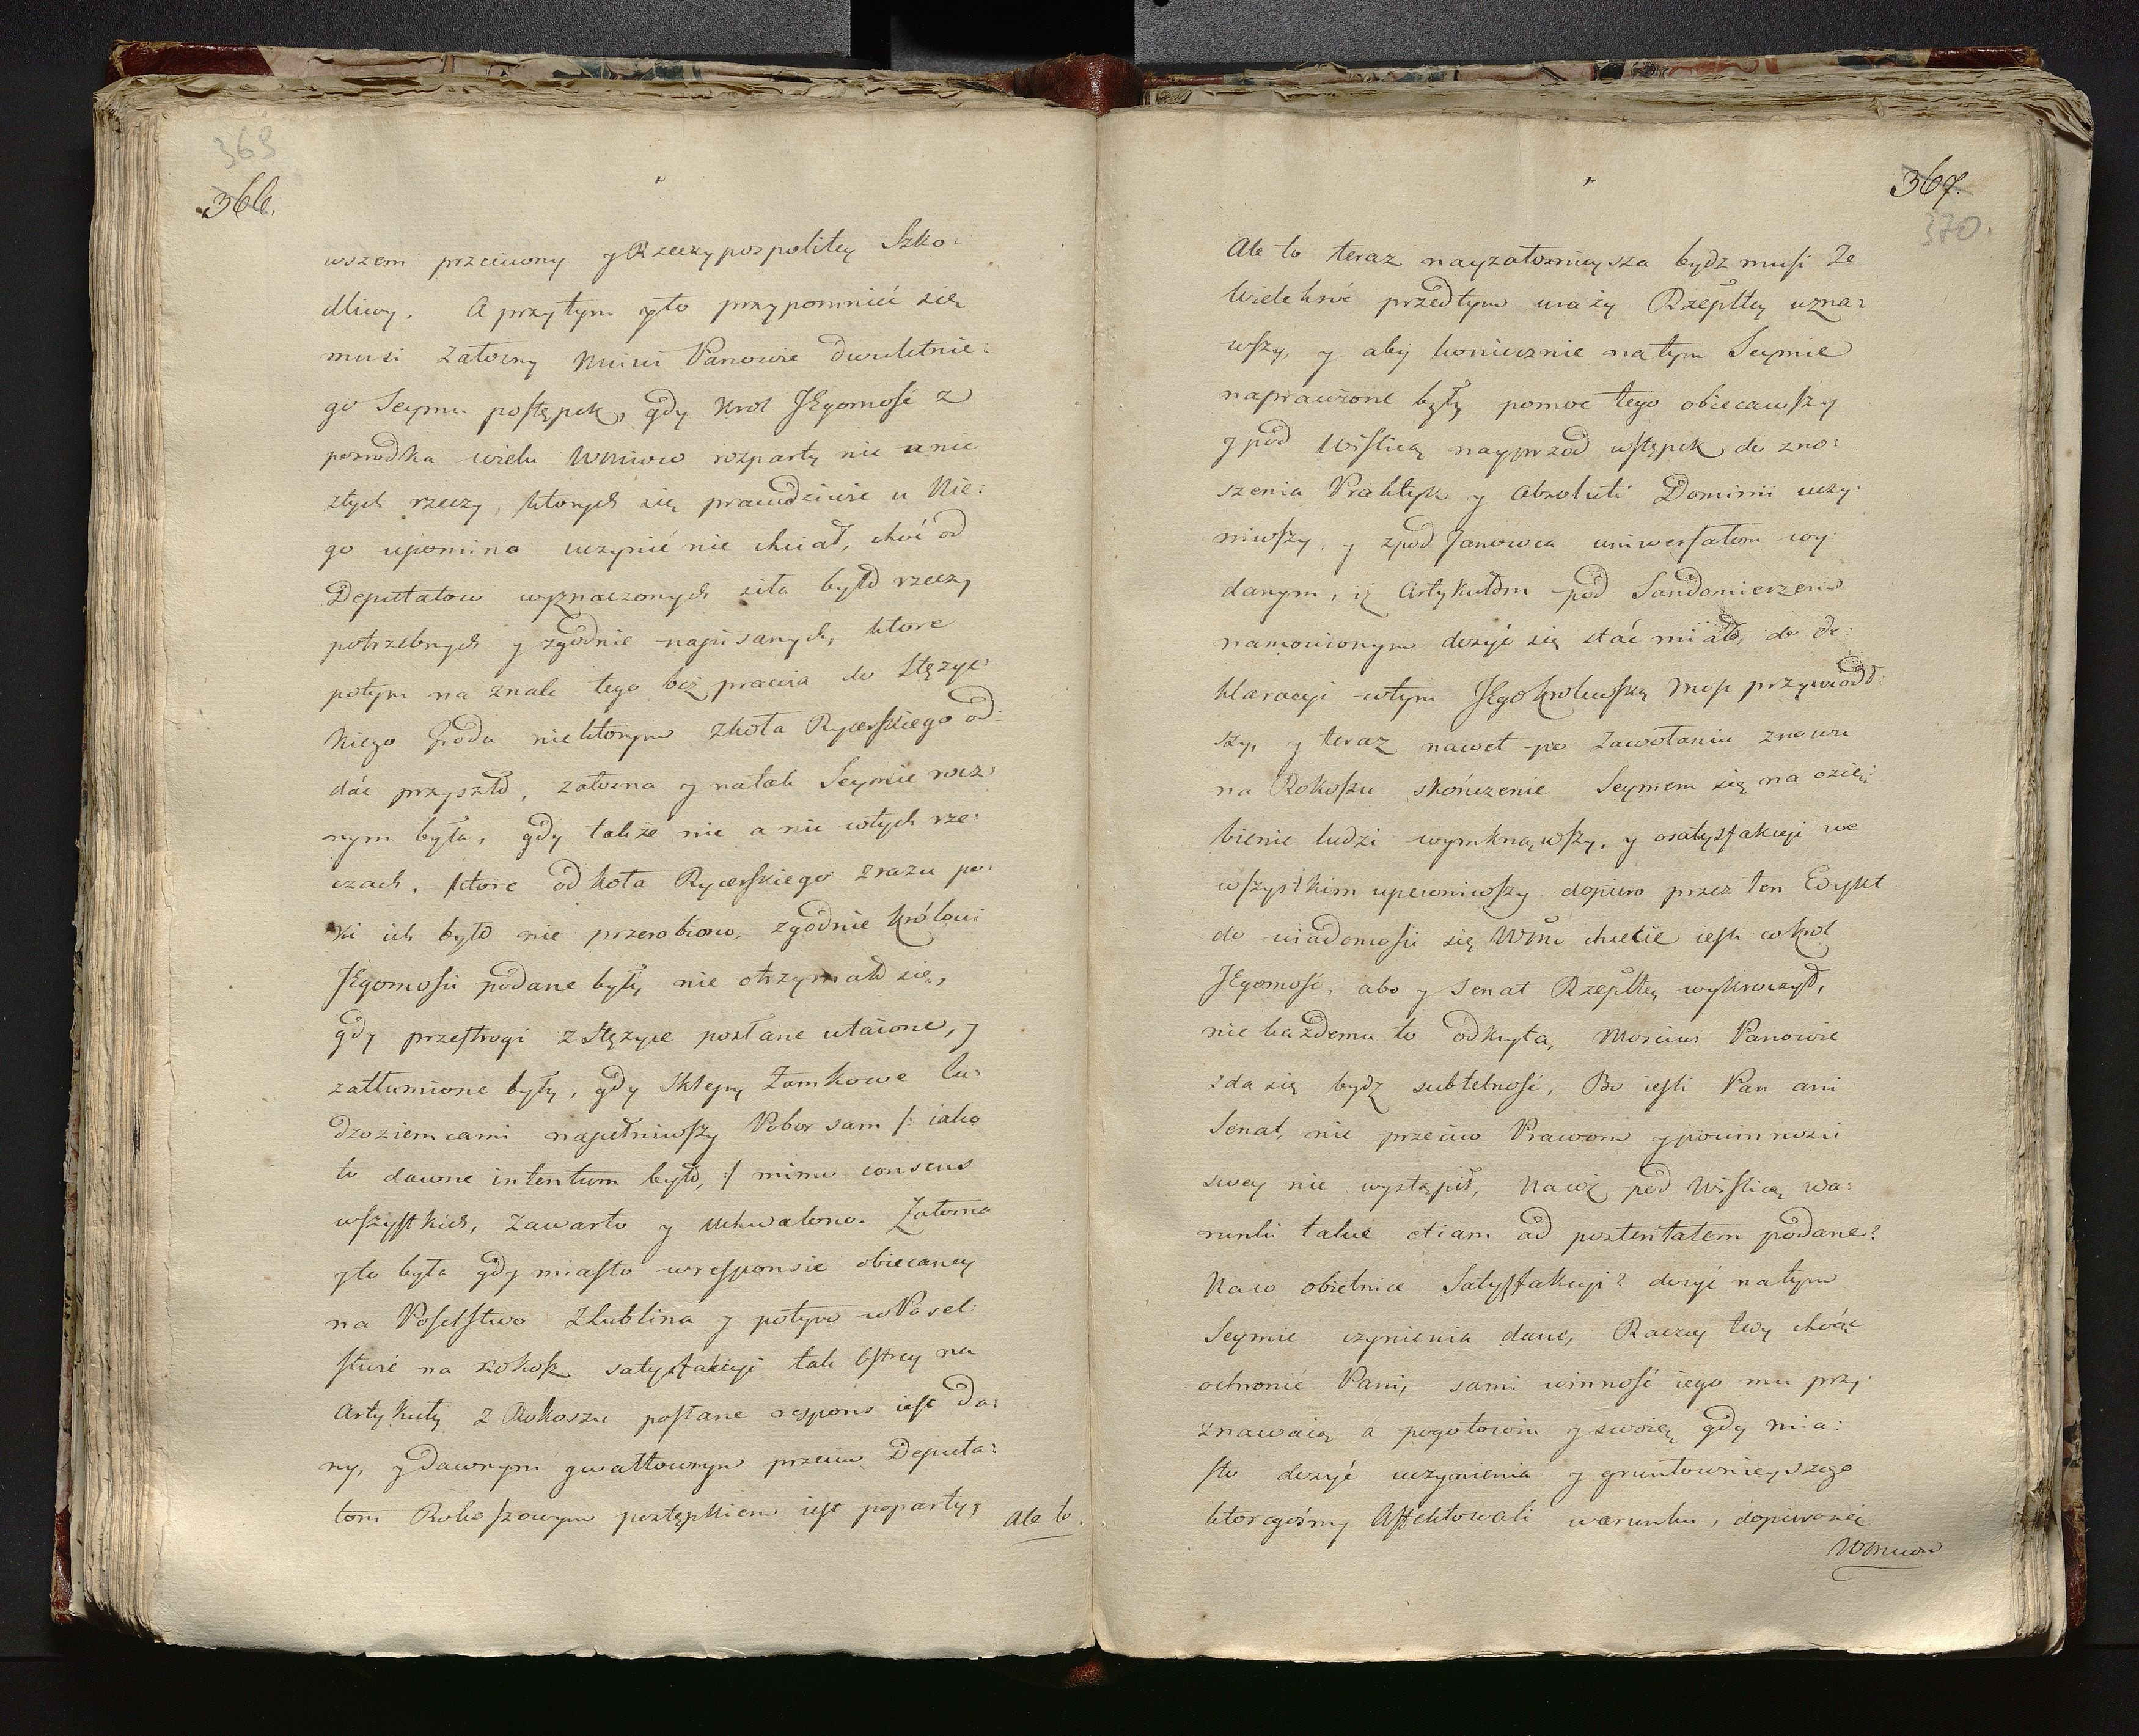 369
366.
wszem przeciwny y Rzeczypospolitey Szko:
dliwy. A przytym yto przypomnieć się
musi żałosny Mciwi Panowie dwuletnie:
go Seymu postępek, gdy Krol JEgomość z
posrodka wielu WMciow rozparty nic a nic
złych rzeczy, ktorych się prawdziwie u Nie:
go upomina uczynić nie chciał, choć od
Deputatow wyznaczonych siła było rzeczy
potrzebnych y zgodnie napisanych, ktore
potym na znak tego bez prawia do Stężyc:
kiego Grodu niektorym zkoła Rycerskiego od:
dać przyszło, żałosna y natak Seymie rocz:
nym była, gdy także nic a nic wtych rze:
czach, ktore od koła Rycerskiego zrazu po:
ki ich było nie przerobiono, zgodnie Królowi
JEgomości podane były nie otrzymało się,
gdy przestrogi z Stężyce posłane utaione, y
zatłumione były, gdy Sklepy Zamkowe Cu:
dzoziemcami napełniwszy Pobor sam /: iako
to dawne intentum było, :/ mimo consens
wszystkich, zawarto y uchwalono. Załosna
yto była gdy miasto wresponsie obiecaney
na Poselstwo z Lublina y potym w Posel:
stwie na Rokosz satysfakcyi tak ostrey na
Artykuły z Rokoszu posłane respons iest da:
ny, y dawnym gwałtownym przeciw Deputa:
tom Rokoszowym postępkiem iest poparty,
Ale to.
367.
370.
Ale to teraz nayżałosnieysza bydz musi Że
wielekroć przedtym urazy Rzeplltey uzna:
wszy, y aby koniecznie natym Seymie
naprawione były pomoc tego obiecawszy
y pod Wislicą nayprzod wstępek do zno:
szenia Praktyk y Absoluti Dominii uczy:
niwszy, y zpod Janowca uniwersałem wy:
danym, iż Artykułom pod Sandomierzem
namowionym dosyć się stać miało, do De:
klaracyi wtym JEgo Krolewską Mość przywiodł:
szy, y teraz nawet po Zawołaniu znowu
na Rokoszu skończenie Seymem się na ozię:
bienie ludzi wymknąwszy, y osatysfakcyi we
wszystkim upewniwszy dopiero przez ten Edykt
do wiadomości się WMci chcecie iesli co Krol
JEgomość, abo y Senat Rzepltey wykroczył,
nie każdemu to odkryta, Mosciwi Panowie
zda się bydz subtelność, Bo iesli Pan ani
Senat, nic przeciwo Prawom y powinnosci
swey nie wystąpił, Nacoż pod Wislicą wa:
runki takie etiam ad posteritatem podane?
Naco obietnice Satysfakcyi? dosyć natym
Seymie czynienia dane, Raczey tedy chcąc
ochronić Pani, sami winność iego mu przy:
znawaią a pogotowiu y swoię, gdy mia:
sto dosyć uczynienia y gruntownieyszego
ktoregośmy Affektowali warunku, dopieronać
WMciow